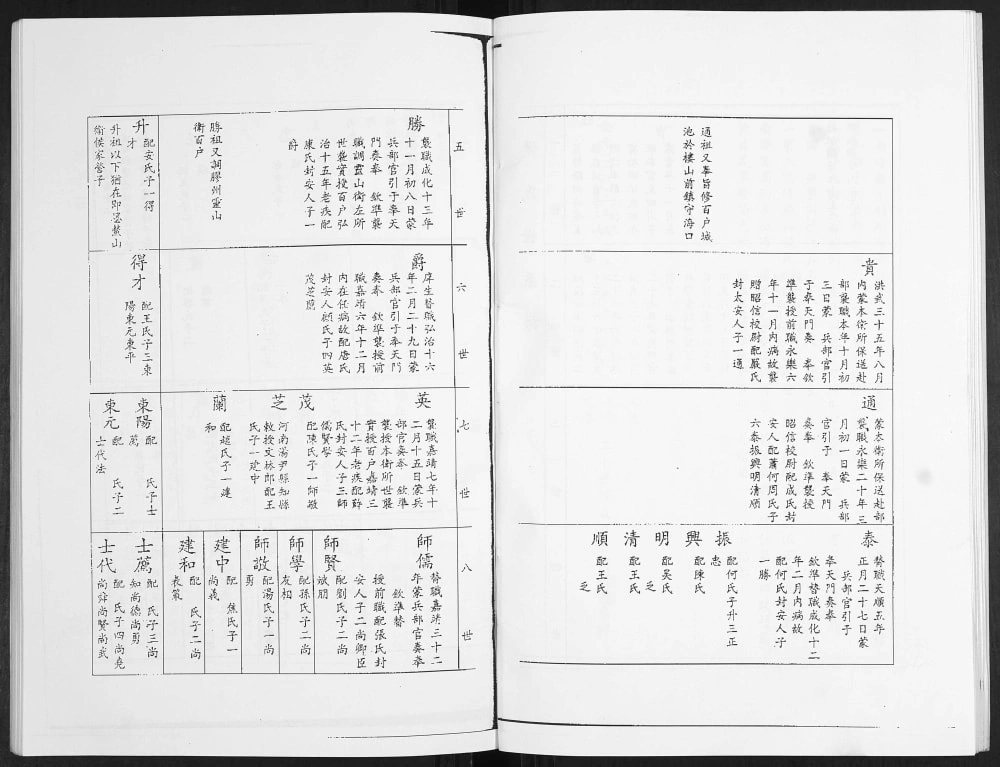 通祖又奉旨修百户城
池於樓山前鎮守海口
貴
洪武三十五年八月
内蒙本衛所保送赴
部襲職本年十月初
三日蒙 兵部官引
于奉天門奏 奉欽
準襲授前職永樂六
年十一月内病故襲
贈昭信校尉配嚴氏
封太安人子一通
通
蒙本衛所保送赴部
襲職永樂二十年三
月初一日蒙 兵部
官引于 奉天門
奏奉 欽準襲授
昭信校尉配成氏封
安人配蕭何周氏子
六泰振興明清順
泰
替職天順五年
正月二十七日蒙
兵部官引于
奉天門奏奉
欽準替職成化十二
年二月内病故
配何氏封安人子
一勝
振
配何氏子升三正
忠
興
配陳氏
明
配吳氏
乏
清
配王氏
乏
順
配王氏
乏
五世
勝
襲職成化十三年
十一月初八日蒙
兵部官引于奉天
門奏奉 欽準襲
職調靈山衛左所
世襲實授百户弘
治十五年老疾配
康氏封安人子一
爵
勝祖又調膠州靈山
衛百户
升
配安氏子一得
才
升祖以下猶在即墨鰲山
衛侯家營子
六世
爵
庠生替職弘治十六
年二月二十九日蒙
兵部官引于奉天門
奏奉 欽準襲授前
職嘉靖六年十二月
内在任病故配唐氏
封安人顧氏子四英
茂芝蘭
得才
配王氏子三東
陽東元東平
七世
英
襲職嘉靖七年十
二月十五日蒙兵
部官奏奉 欽準
襲授本衛所世襲
實授百户嘉靖三
十二年老疾配薛
氏封安人子三師
儒賢學
茂
配陳氏子一師敬
芝
河南湯尹縣知縣
敕授文林郎配王
氏子一建中
蘭
配趙氏子一建
和
東陽
配 氏子士
薦
東元
配 氏子二
士代法
八世
師儒
替職嘉靖三十二
年蒙兵部官奏奉
欽準替
授前職配張氏封
安人子二尚卿臣
師賢
配劉氏子二尚
斌朋
師學
配孫氏子二尚
友相
師敬
配湯氏子一尚
勇
建中
配 焦氏子一
尚義
建和
配 氏子二尚
表策
士薦
配 氏子三尚
知尚德尚勇
士代
配 氏子四尚堯
尚舜尚賢尚武